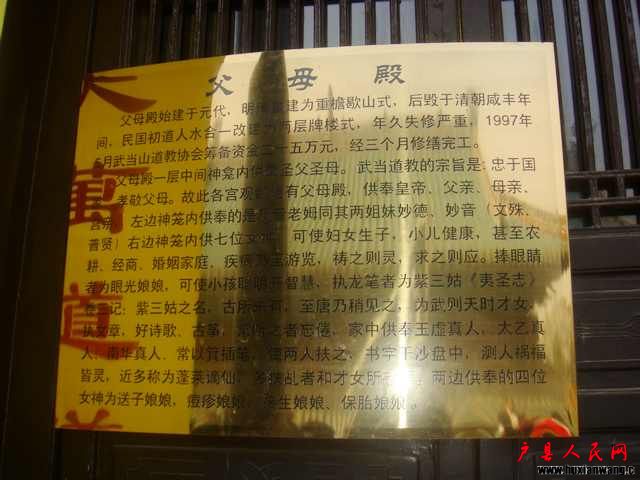 父 母 殿
父母殿始建于元代，明 建为重檐歇山式，后毁于清朝咸丰年
间，民国初道人水合一改建为两层牌楼式，年久失修严重，1997年
月武当山道教协会筹备资金二十五万元，经三个月修缮完工。
父母殿一层中间神龛内供 圣父圣母。武当道教的宗旨是：忠于国
孝敬父母。故此各宫观 有父母殿，供奉皇帝、父亲、母亲、
左边神笼内供奉的是 老姆同其两姐妹妙德、妙音（文殊、
普贤）右边神笼内供七位女 可使妇女生子，小儿健康，甚至农
耕、经商、婚姻家庭，疾病乃至游览，祷之则灵，求之则应。捧眼睛
者为眼光娘娘，可使小孩聪明开智慧，执龙笔者为紫三姑《夷圣志》
记：紫三姑之名，古所未有，至唐乃稍见之，为武则天时才女，
执文章，好诗歌、古筝， 之者忘倦，家中供奉玉虚真人，太乙真
人，南华真人，常以箕插笔，使两人扶之，书字于沙盘中，测人祸福
皆灵，近多称为蓬莱谪仙， 扶乩者和才女所 两边供奉的四位
女神为送子娘娘，痘疹娘娘， 生娘娘、保胎娘娘。
天
萬
道
户县人民网
www.huxianwang.c